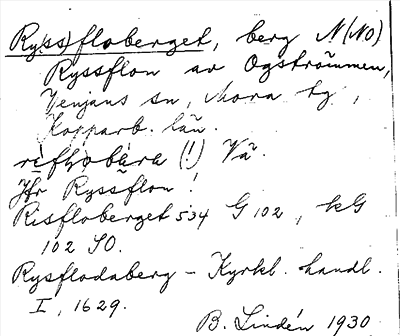 Ry(ss)floberget, berg N(NO)
Ryssflon av Ogströmmen,
Venjans sn, Mora tg,
Kopparb. län.
Vå.
Jfr Ryssflon!
Risfloberget 534 G 102, kG
102 SO.
Rysflodaberg - Kyrkl. handl.
I, 1629.
B. Lindén 1930.